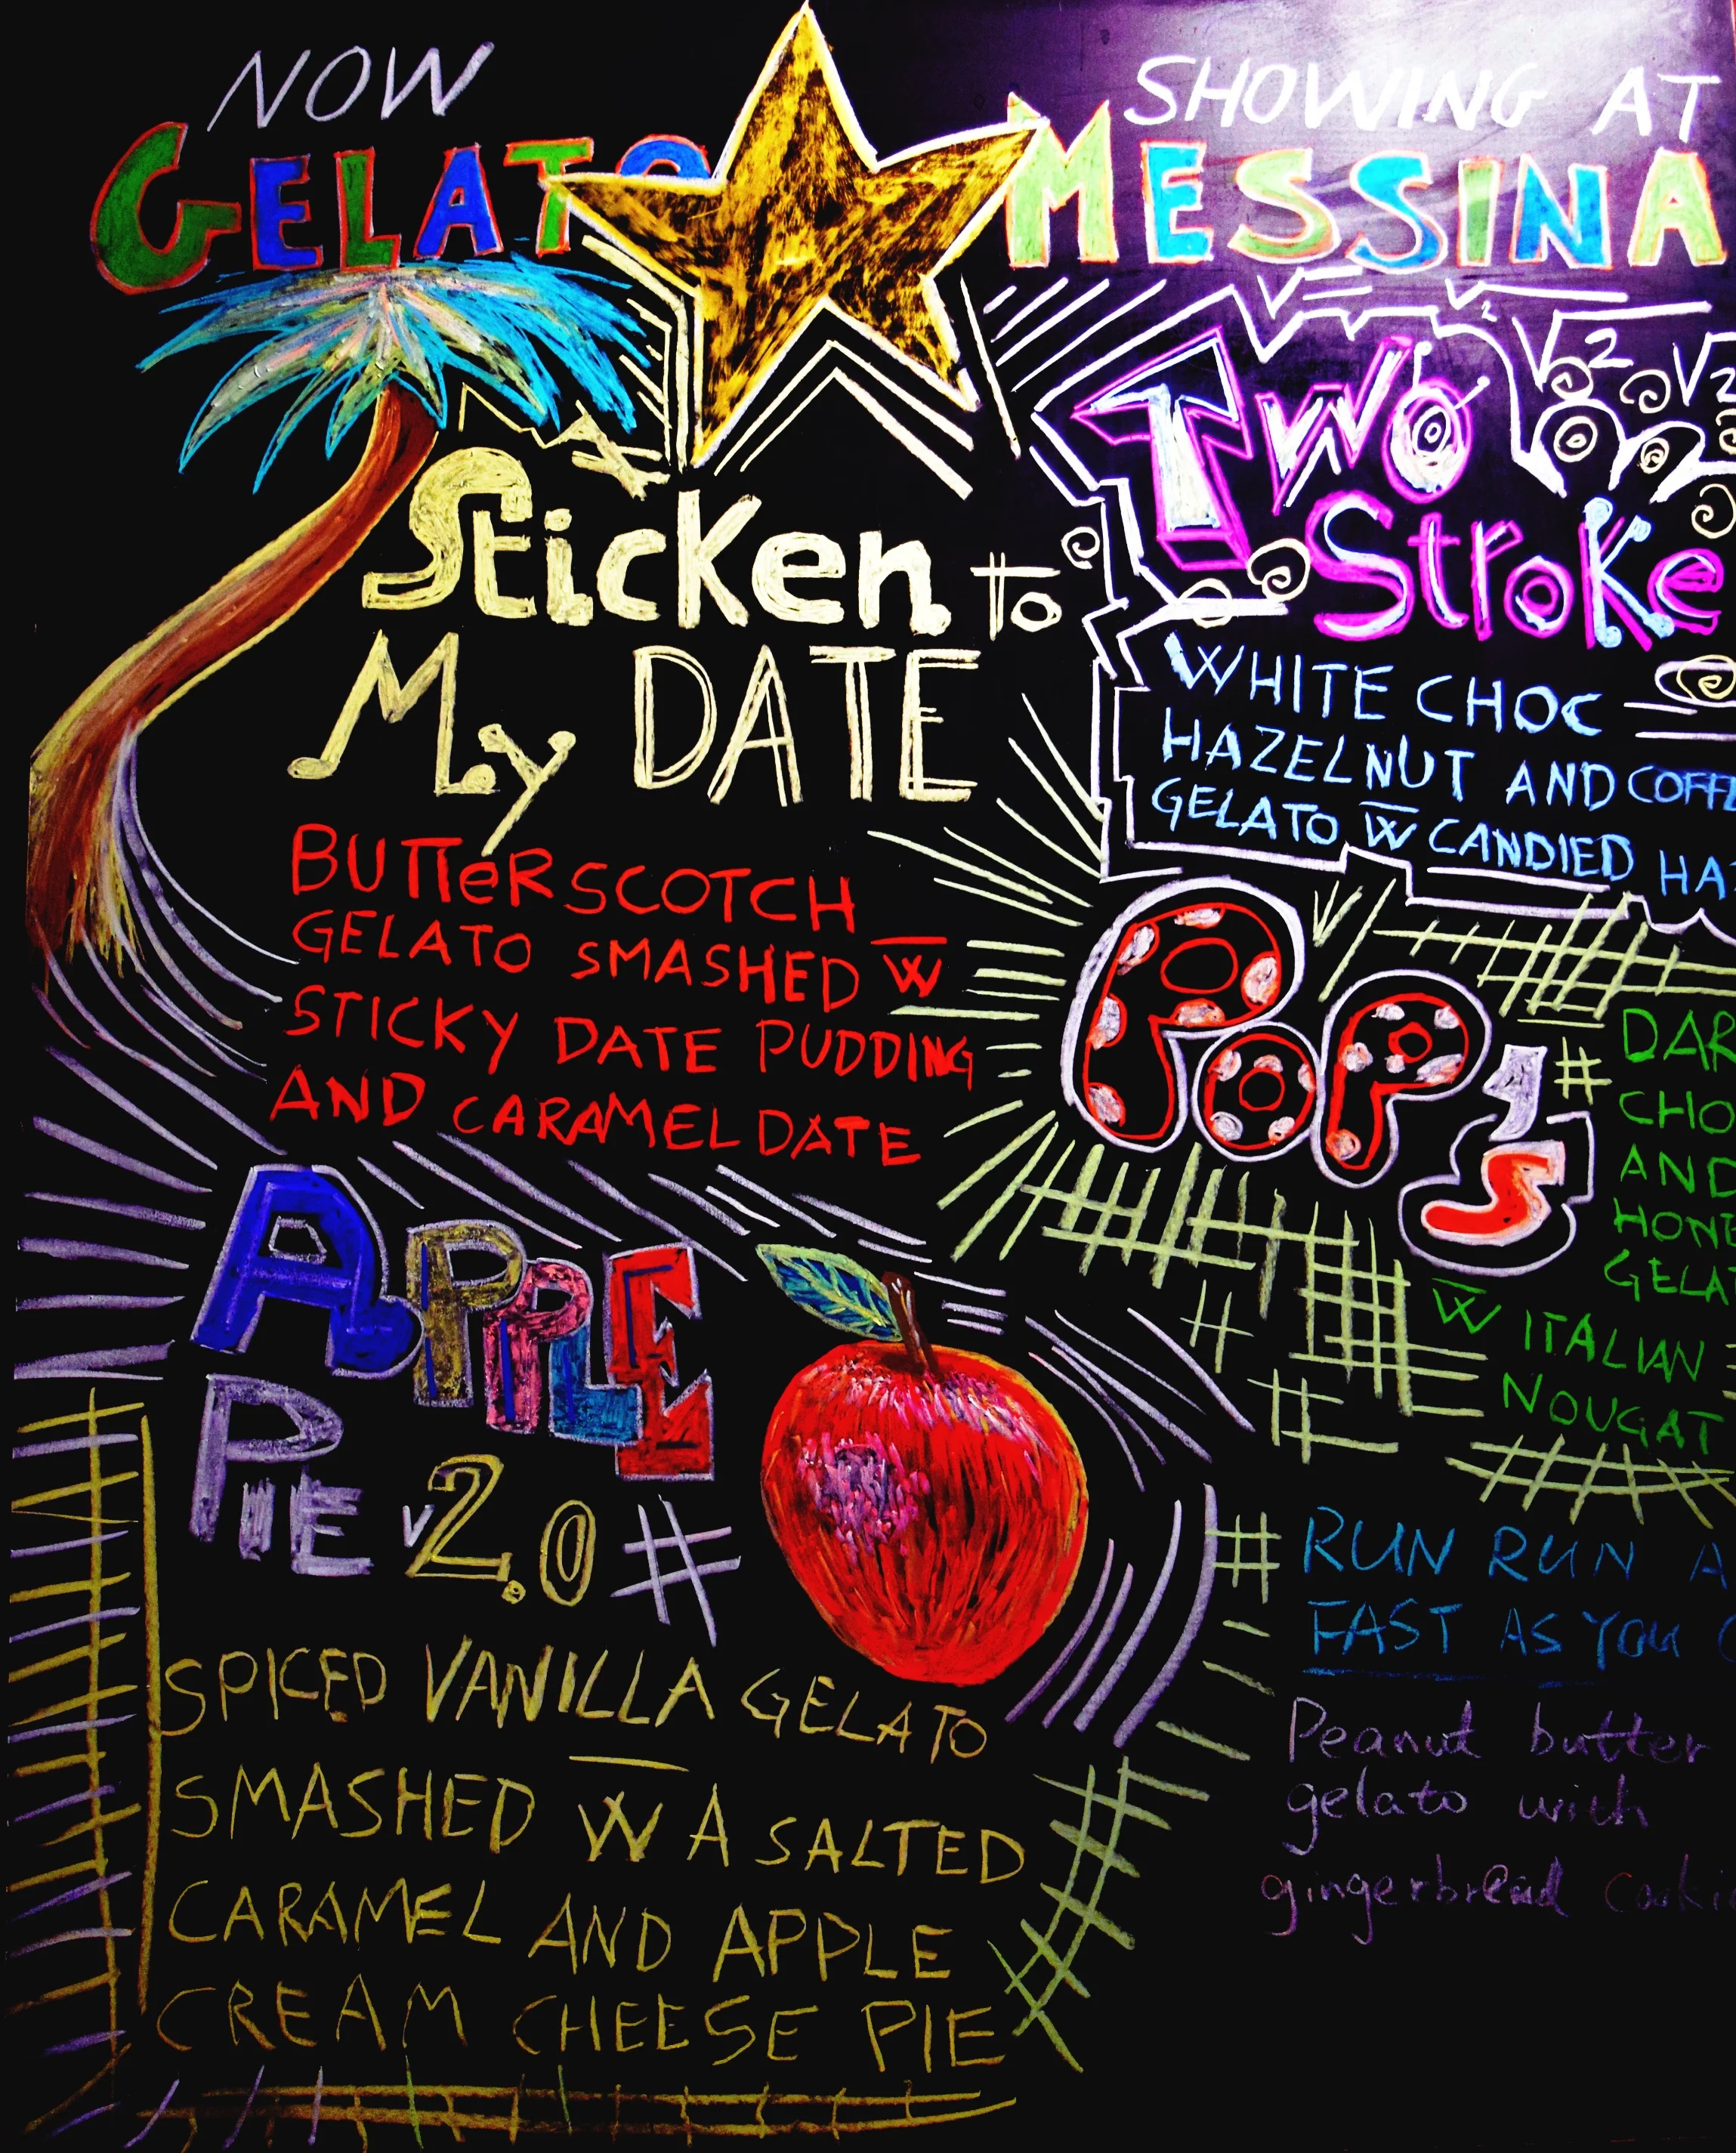 NOW SHOWING AT
GELATO MESSINA
Sticken to
My DATE
BUTTeRSCOTCH
GELATO SMASHED W̅
STICKY DATE PUDDING
AND CARAMEL DATE
APPLE
PIE v2.0 #
SPICED VANILLA GELATO
SMASHED W̅ A SALTED
CARAMEL AND APPLE
CREAM CHEESE PIE
Two
StroKe
WHITE CHOC
HAZELNUT AND COFFE
GELATO W̅ CANDIED HAZ
PoP's
# DAR
CHO
AND
HONE
GELAT
W̅ ITALIAN
NOUGAT
# RUN RUN A
FAST AS YOU C
Peanut butter
gelato with
gingerbread cooki